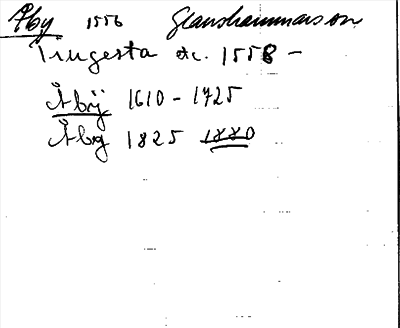 Åby 1556 Glanshammars sn
Trugesta etc. 1558 -
Åbÿ 1610 - 1725
Åby 1825 1880